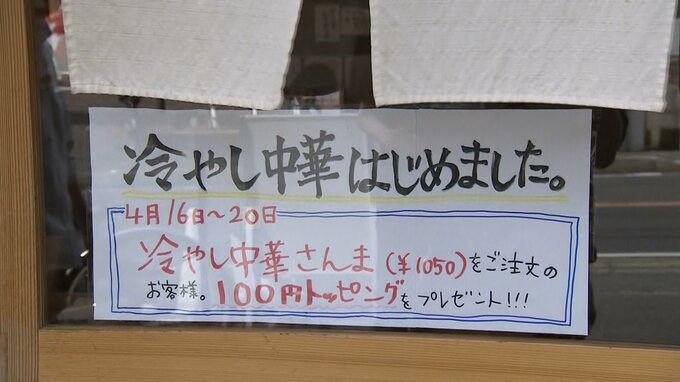 冷やし中華はじめました。
4月16日～20日
冷やし中華さんま(¥1050)をご注文の
お客様。100円トッピングをプレゼント!!!